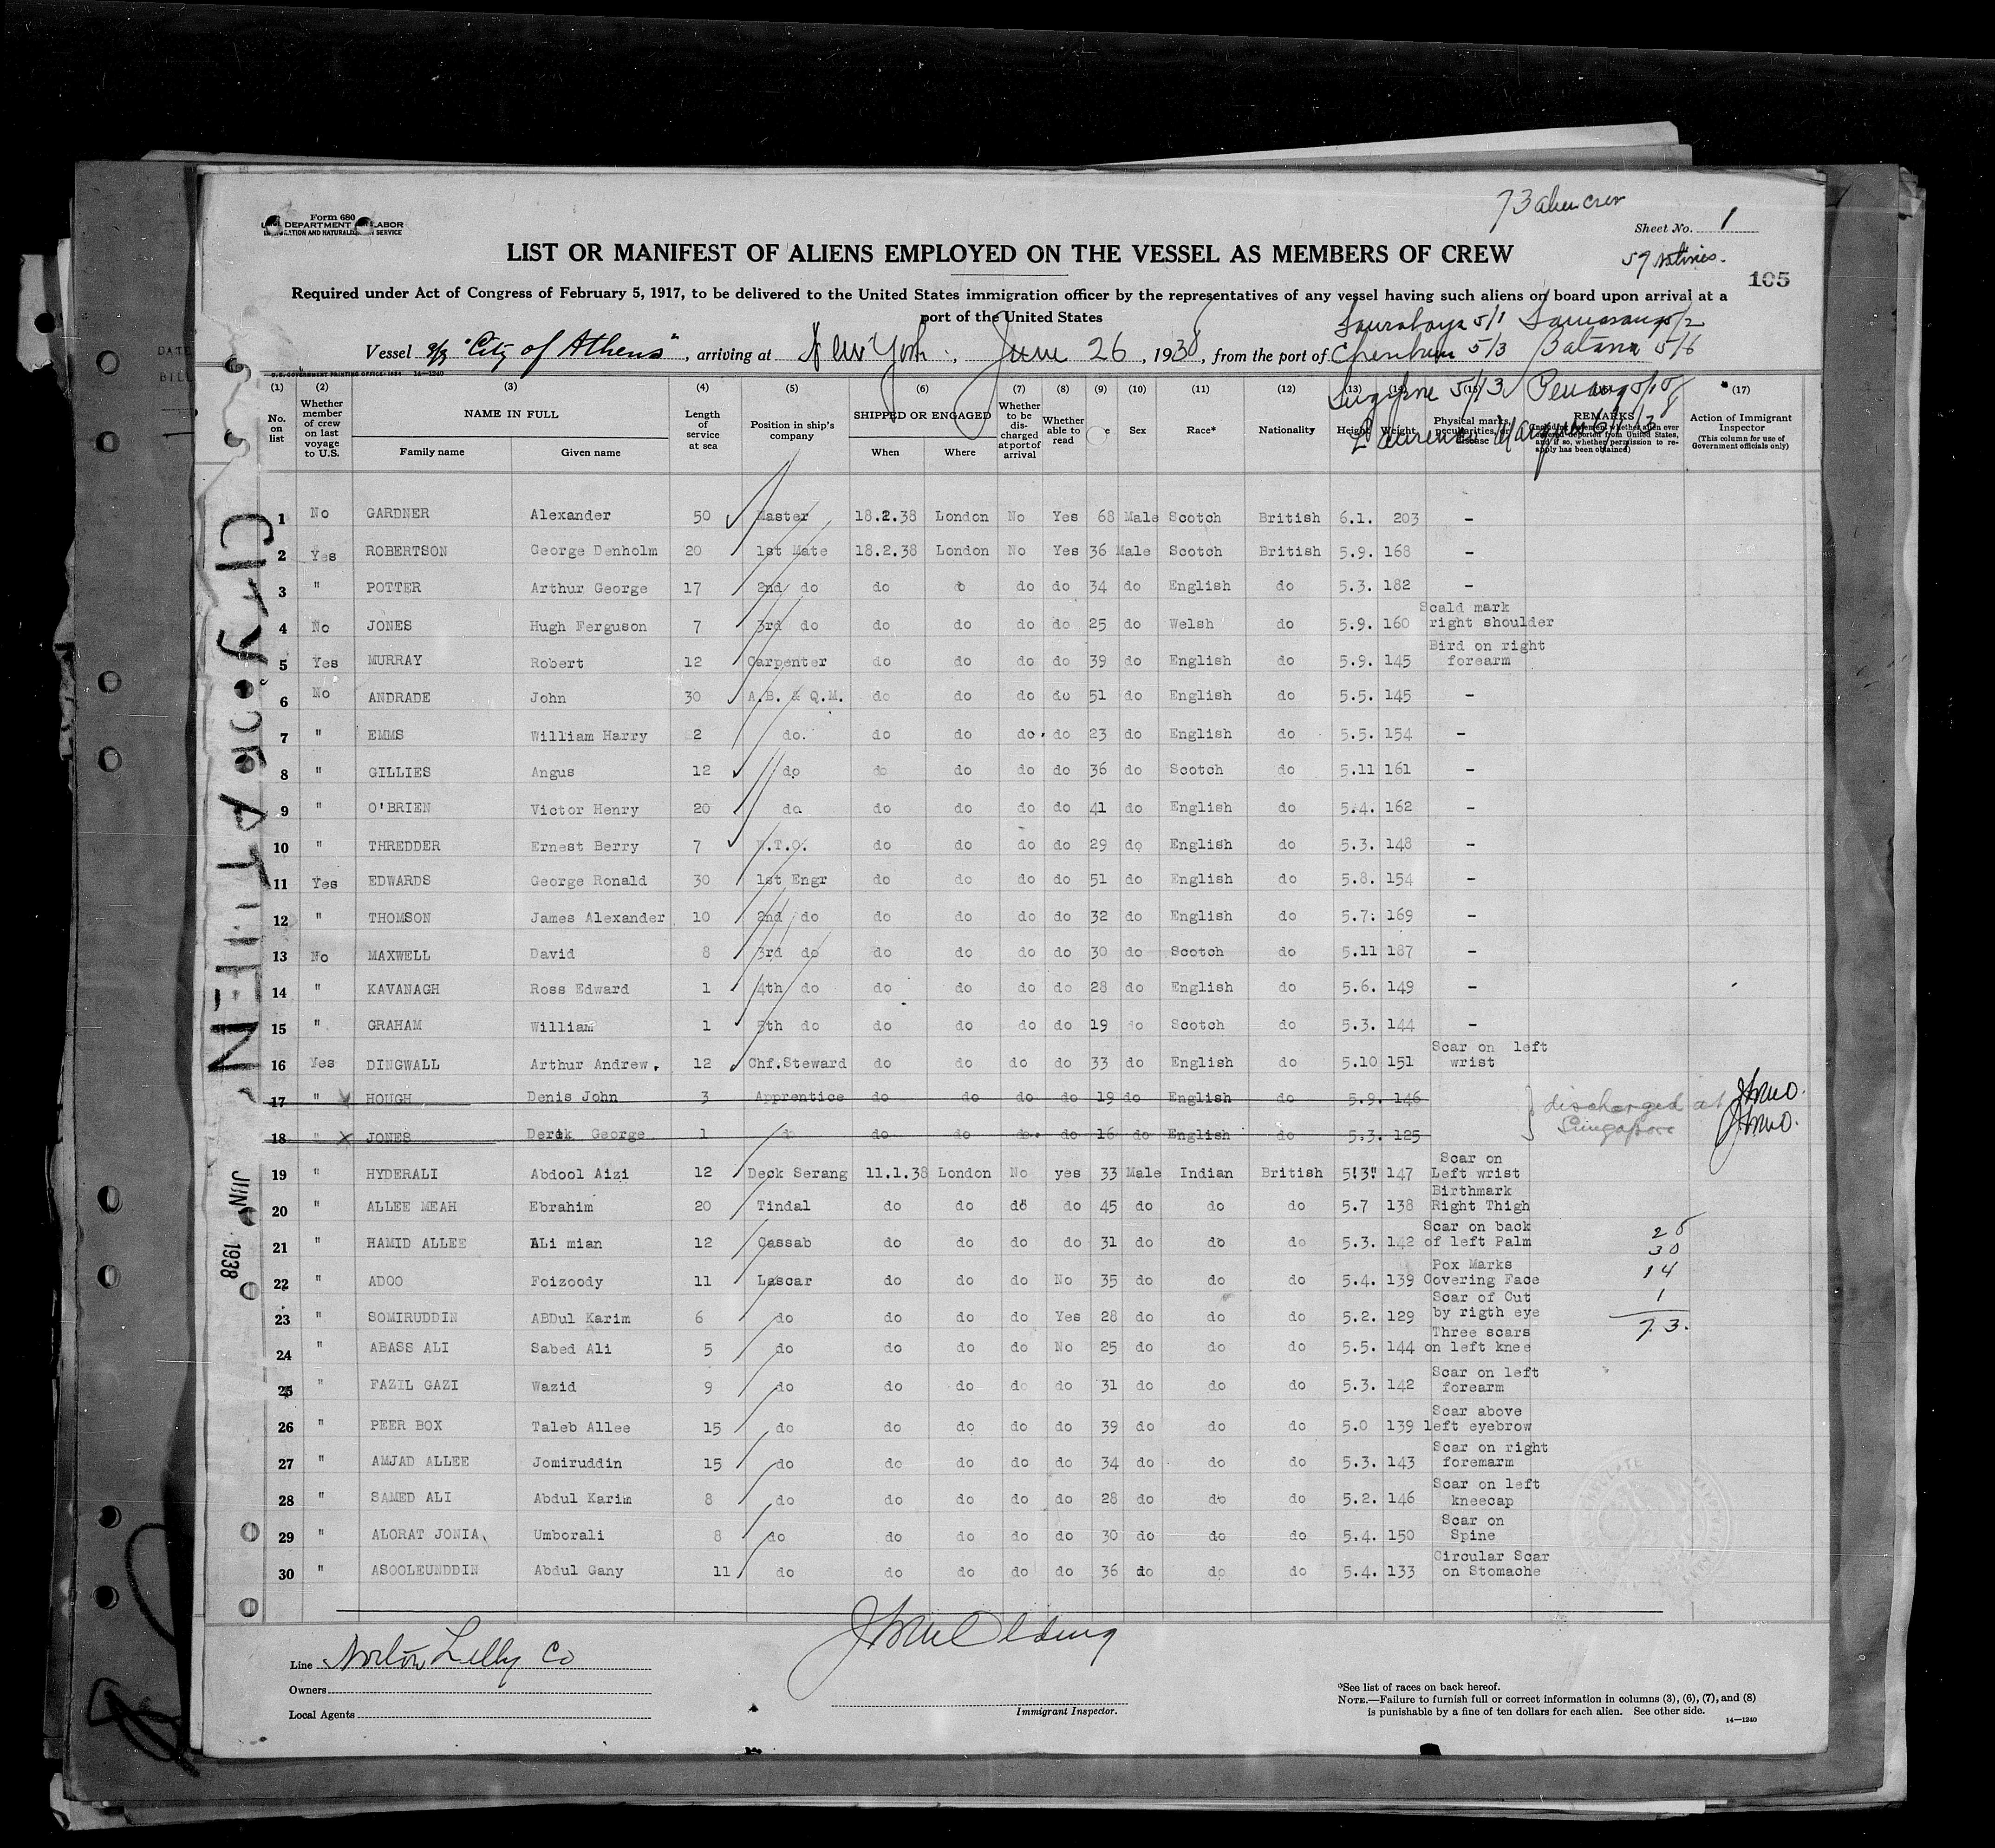 73 alien crew
Form 680
DEPARTMENT LABOR
IMMIGRATION AND NATURALIZATION SERVICE
Sheet No. 1
LIST OR MANIFEST OF ALIENS EMPLOYED ON THE VESSEL AS MEMBERS OF CREW
59 natives.
105
Required under Act of Congress of February 5, 1917, to be delivered to the United States immigration officer by the representatives of any vessel having such aliens on board upon arrival at a
port of the United States
Sourabaya 5/1 Samarang 5/2
Vessel "City of Athens", arriving at New York, June 26, 1938, from the port of Cheribon 5/3 Batavia 5/6
Singapore 5/13 Penang 5/18
Laurenco Marques
U.S. GOVERNMENT PRINTING OFFICE: 1934 14-1240
(1) (2) (3) (4) (5) (6) (7) (8) (9) (10) (11) (12) (13) (14) (15) (17)
No. on list
Whether member of crew on last voyage to U.S.
NAME IN FULL
Family name Given name
Length of service at sea
Position in ship's company
SHIPPED OR ENGAGED
When Where
Whether to be discharged at port of arrival
Whether able to read
Sex
Race*
Nationality
Height
Weight
Physical marks, peculiarities, or disease
REMARKS
Action of Immigrant Inspector
(This column for use of Government officials only)
1 No GARDNER Alexander 50 Master 18.2.38 London No Yes 68 Male Scotch British 6.1. 203 -
2 Yes ROBERTSON George Denholm 20 1st Mate 18.2.38 London No Yes 36 Male Scotch British 5.9. 168 -
3 " POTTER Arthur George 17 2nd do do o do do 34 do English do 5.3. 182 -
4 No JONES Hugh Ferguson 7 3rd do do do do do 25 do Welsh do 5.9. 160 Scald mark right shoulder
5 Yes MURRAY Robert 12 Carpenter do do do do 39 do English do 5.9. 145 Bird on right forearm
6 No ANDRADE John 30 A.B. & Q.M. do do do do 51 do English do 5.5. 145 -
7 " EMMS William Harry 2 do. do do do. do 23 do English do 5.5. 154 -
8 " GILLIES Angus 12 do do do do do 36 do Scotch do 5.11 161 -
9 " O'BRIEN Victor Henry 20 do do do do do 41 do English do 5.4. 162 -
10 " THREDDER Ernest Berry 7 W.T.O. do do do do 29 do English do 5.3. 148 -
11 Yes EDWARDS George Ronald 30 1st Engr do do do do 51 do English do 5.8. 154 -
12 " THOMSON James Alexander 10 2nd do do do do do 32 do English do 5.7. 169 -
13 No MAXWELL David 8 3rd do do do do do 30 do Scotch do 5.11 187 -
14 " KAVANAGH Ross Edward 1 4th do do do do do 28 do English do 5.6. 149 -
15 " GRAHAM William 1 5th do do do do do 19 do Scotch do 5.3. 144 -
16 Yes DINGWALL Arthur Andrew. 12 Chf.Steward do do do do 33 do English do 5.10 151 Scar on left wrist
17 " HOUGH Denis John 3 Apprentice do do do do 19 do English do 5.9. 146 discharged at
18 " x JONES Derek George 1 do do do do do 16 do English do 5.3. 125 Singapore
19 " HYDERALI Abdool Aizi 12 Deck Serang 11.1.38 London No yes 33 Male Indian British 5'3" 147 Scar on Left wrist
20 " ALLEE MEAH Ebrahim 20 Tindal do do do do 45 do do do 5.7 138 Birthmark Right Thigh
21 " HAMID ALLEE ALi mian 12 Cassab do do do do 31 do do do 5.3. 142 Scar on back of left Palm
22 " ADOO Foizoody 11 Lascar do do do No 35 do do do 5.4. 139 Pox Marks Covering Face
23 " SOMIRUDDIN ABDul Karim 6 do do do do Yes 28 do do do 5.2. 129 Scar of Cut by rigth eye
24 " ABASS ALI Sabed Ali 5 do do do do No 25 do do do 5.5. 144 Three scars on left knee
25 " FAZIL GAZI Wazid 9 do do do do do 31 do do do 5.3. 142 Scar on left forearm
26 " PEER BOX Taleb Allee 15 do do do do do 39 do do do 5.0 139 Scar above left eyebrow
27 " AMJAD ALLEE Jomiruddin 15 do do do do do 34 do do do 5.3. 143 Scar on right foremarm
28 " SAMED ALI Abdul Karim 8 do do do do do 28 do do do 5.2. 146 Scar on left kneecap
29 " ALORAT JONIA Umborali 8 do do do do do 30 do do do 5.4. 150 Scar on Spine
30 " ASOOLEUNDDIN Abdul Gany 11 do do do do do 36 do do do 5.4. 133 Circular Scar on Stomache
28
30
14
1
73.
CITY OF ATHENS
JUN 1938
Line Norton Lilly Co
Owners
Local Agents
Immigrant Inspector.
*See list of races on back hereof.
NOTE.—Failure to furnish full or correct information in columns (3), (6), (7), and (8)
is punishable by a fine of ten dollars for each alien. See other side.
14-1240